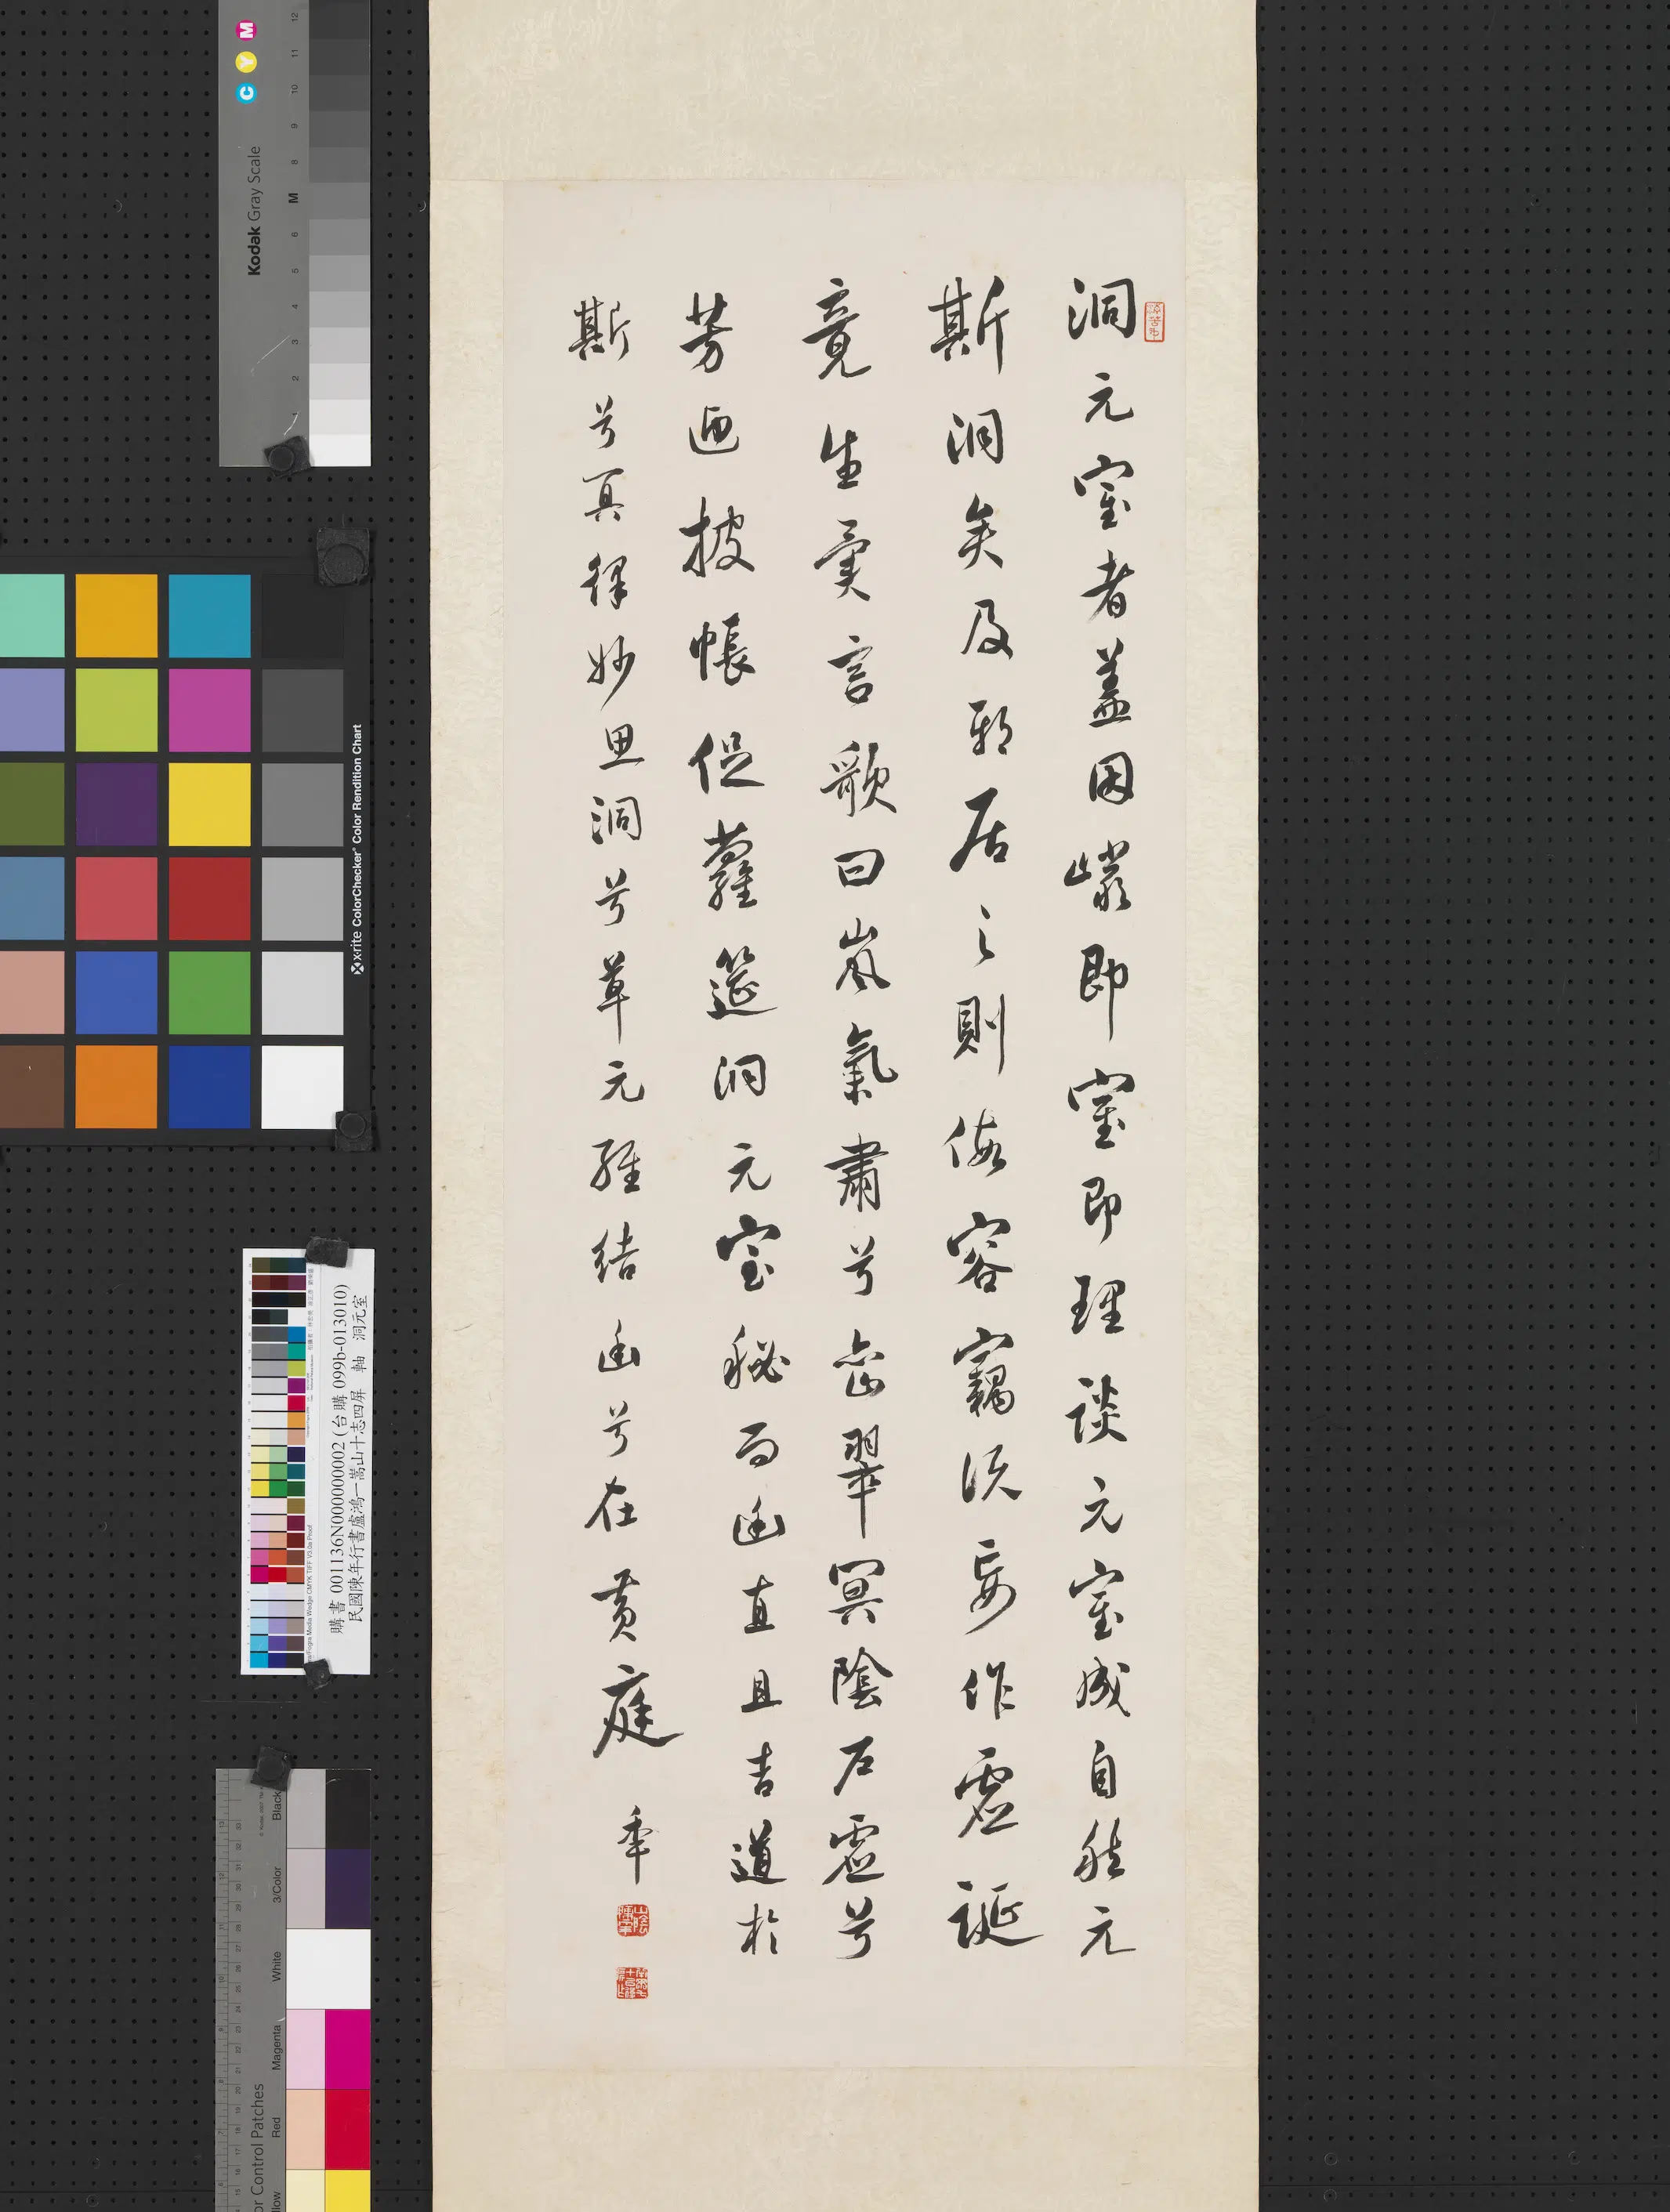 洞元室者蓋因巖即室即理談元室成自然元
斯洞矣及邪居之則假容竊次妄作虛誕
竟生異言歌曰嵐氣肅兮峦翠冥陰戶虛兮
芳迎披帳促蘿筵洞元室秘而幽直且吉道於
斯兮真釋妙思洞兮草元經結幽兮在黃庭
年
山陰陳年
Kodak Gray Scale
C Y M
x-rite ColorChecker Color Rendition Chart
購書 001136N000000002 (台購 099b-013010)
民國陳年行書盧鴻一嵩山十志四屏 軸 洞元室
Black
3/Color
White
Magenta
Red
or Control Patches